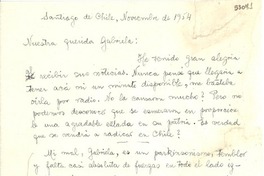 93041
Santiago de Chile, Noviembre de 1954
Nuestra querida Gabriela:
He tenido gran alegría
de recibir sus noticias. Nunca pensé que llegaría a
tener acá ni un minuto disponible, me bastaba
oírla por radio. Se la cansaron mucho? Pero no
podemos en la
una agradable en su patria. Es verdad
que se vendría a radicar en Chile?
Mi mal, Gabriela, es un parkinsonismo, temblor
y falta casi absoluta de fuerzas en todo el lado iz-